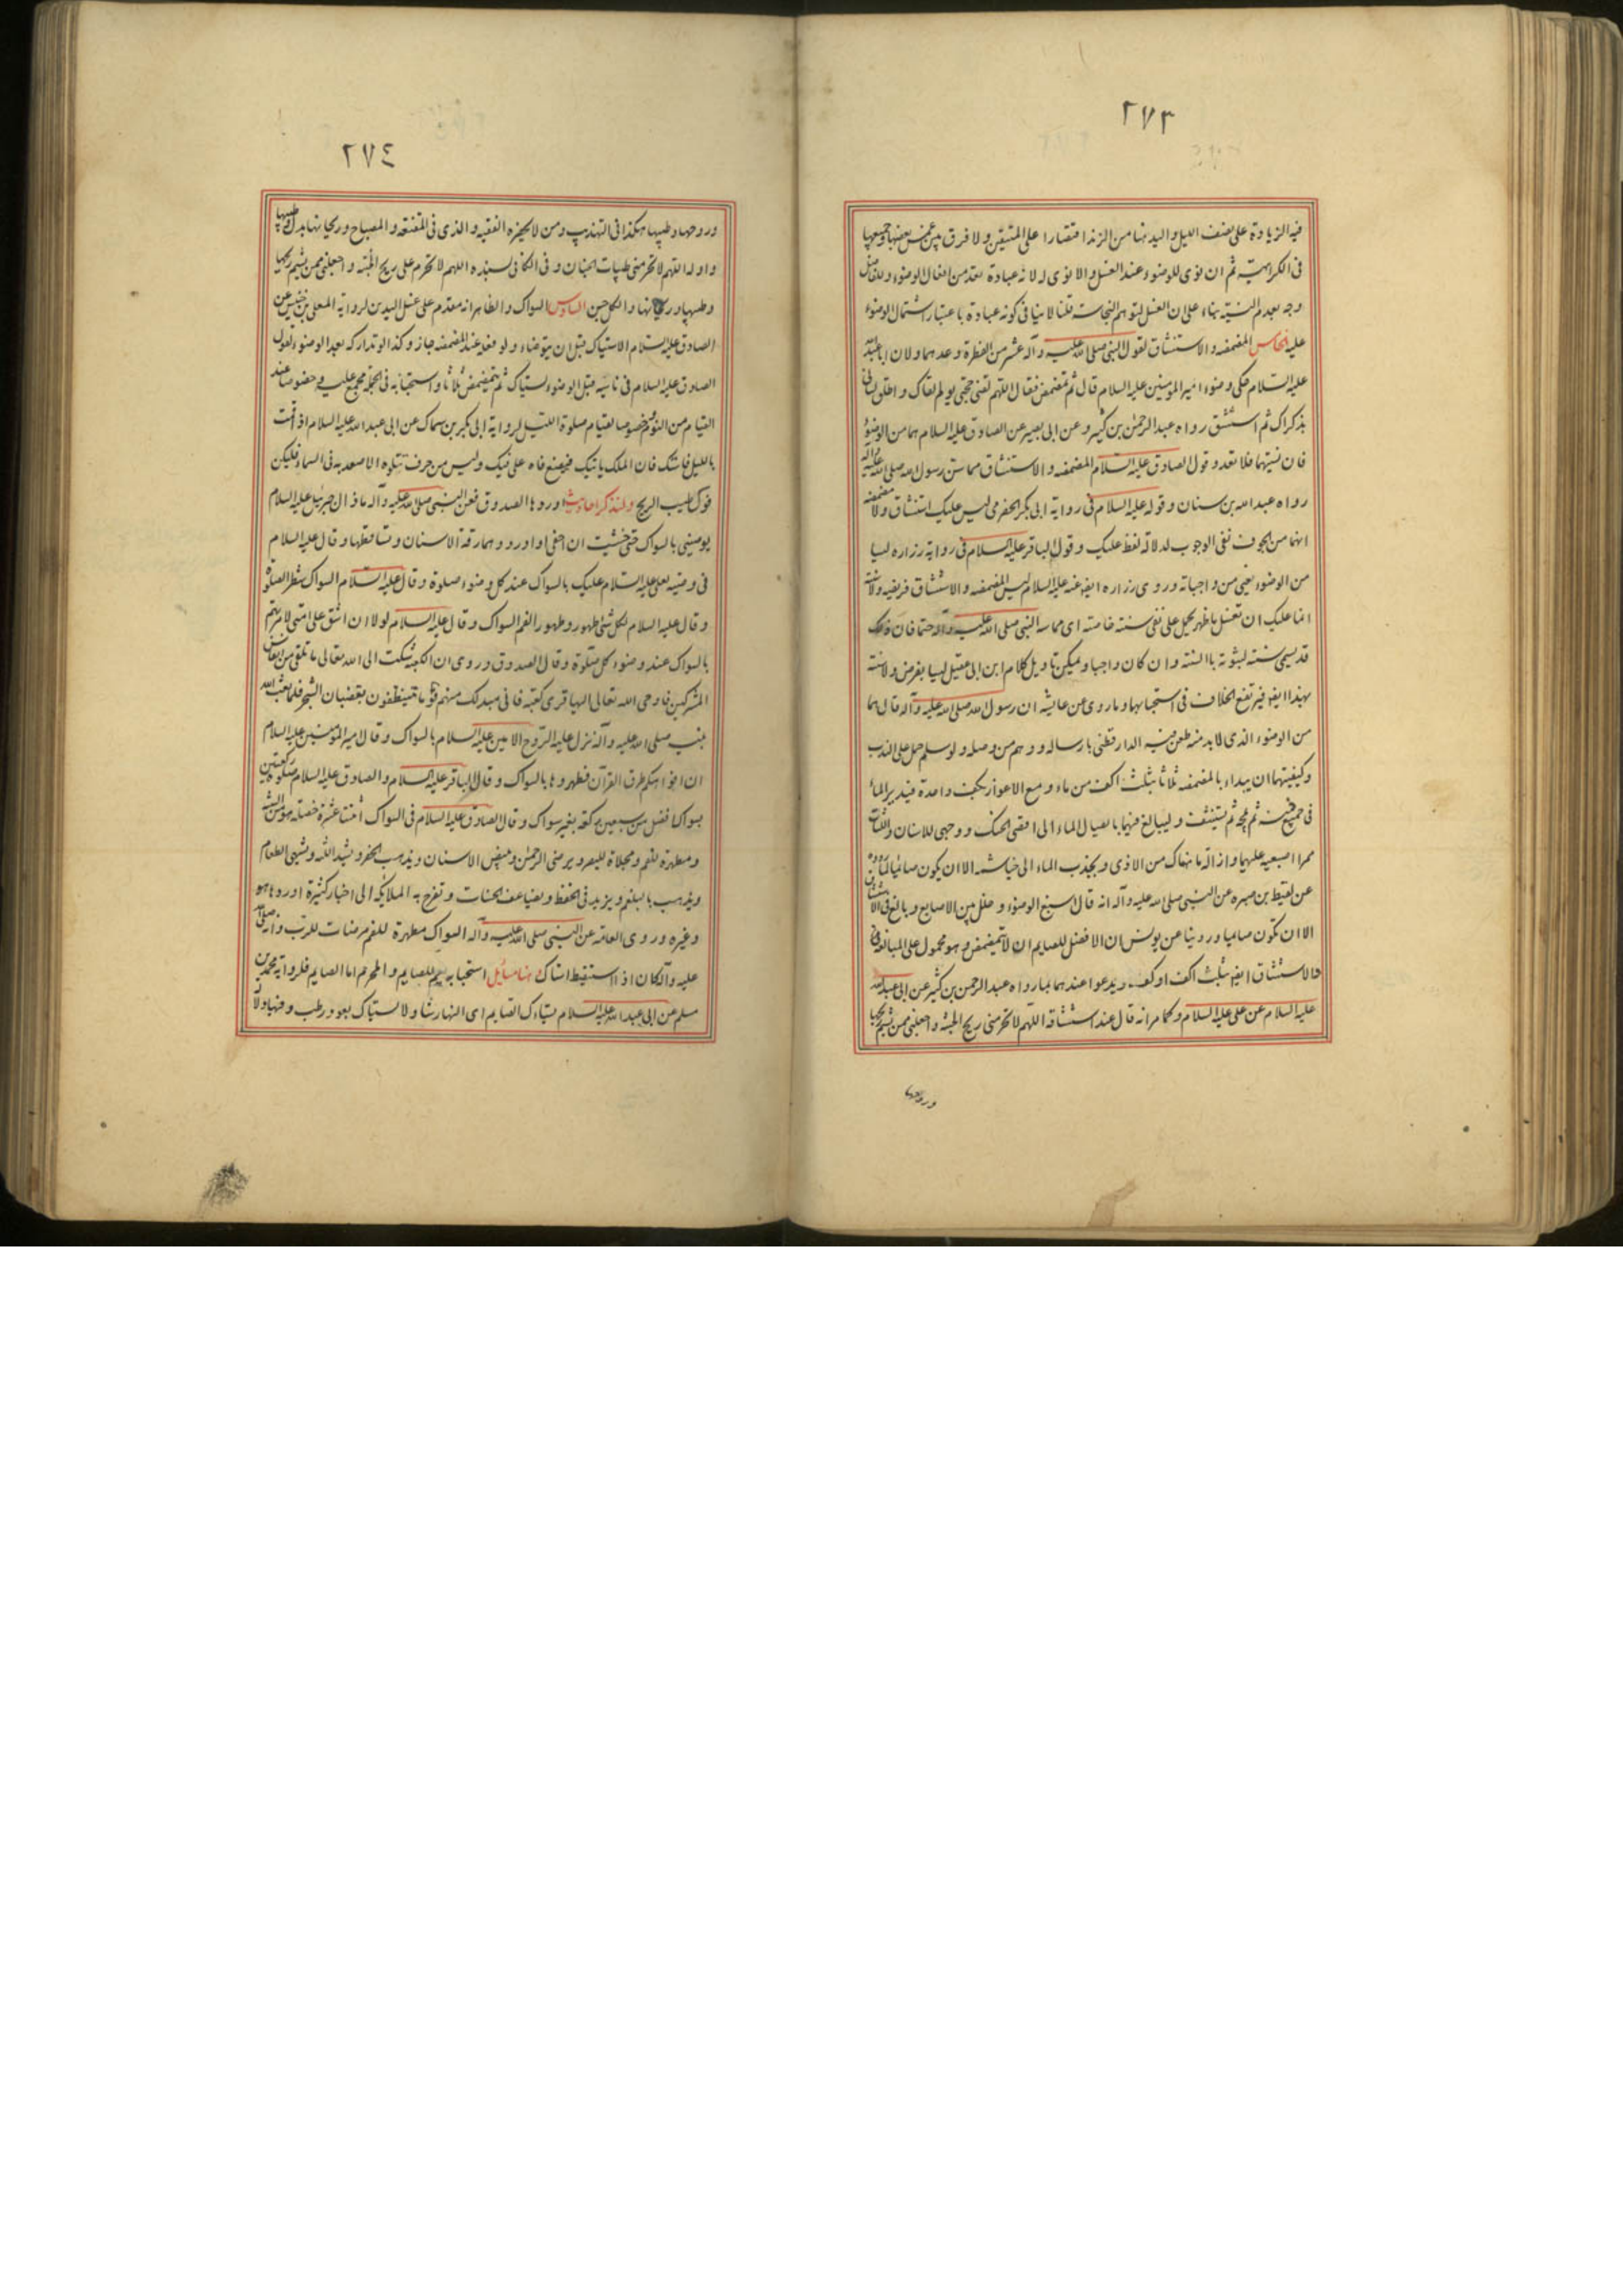 ٢٧٣
فيه الزيادة على نصف الليل واليد هنا من الزند اقتصارا على المتيقن ولا فرق بين غمس بعضها وجميعها
في الكراهية ثم ان نوى للوضوء عند الغسل والا نوى له لانه عبادة تعد من افعال الوضوء وللفاضل
وجه بعدم النية بناء على ان الغسل لتوهم النجاسة قلنا لا ينافي كونه عبادة باعتبار اشتمال الوضوء
عليه الخامس المضمضه والاستنشاق لقول النبي صلى الله عليه وآله عشر من الفطرة وعدهما ولان ابا عبد الله
عليه السلام حكى وضوء امير المومنين عليه السلام قال ثم تمضمض فقال اللهم لقني حجتي يوم القاك واطلق لساني
بذكراك ثم استنشق رواه عبد الرحمن بن كثير وعن ابي بصير عن الصادق عليه السلام هما من الوضوء
فان نسيتهما فلا تعد وقول الصادق عليه السلام المضمضه والاستنشاق مما سن رسول الله صلى الله عليه وآله
رواه عبد الله بن سنان وقوله عليه السلام في رواية ابي بكر الحضرمي ليس عليك استنشاق ولا مضمضه
انهما من الجوف نفي الوجوب لدلالة لفظ عليك وقول الباقر عليه السلام في رواية زراره ليسا
من الوضوء يعني من واجباته وروى زراره ايضا عنه عليه السلام ليس المضمضه والاستنشاق فريضه ولا سنة
انما عليك ان تغسل ما ظهر يحمل على نفي سنته خاصته اى مما سنه النبي صلى الله عليه وآله حتما فان ذلك
قد يسمى سنته لثبوته بالسنة وان كان واجبا ويمكن تاويل كلام ابن ابي عقيل ليسا بفرض ولا سنة
بهذا ايضا فيرتفع الخلاف في استحبابهما وما روى عن عايشه ان رسول الله صلى الله عليه وآله قال هما
من الوضوء الذى لابد منه طعن فيه الدار قطني بارساله ووهم من وصله ولو سلم حمل على الندب
وكيفيتهما ان يبداء بالمضمضه ثلاثا بثلث اكف من ماء ومع الاعواز بكف واحدة فيدير الماء
في جميع فيه ثم يمجه ثم يستنشق وليبالغ فيهما بايصال الماء الى اقصى الحنك ووجهى الاسنان واللثات
ممرا اصبعيه عليهما وازالة ما هناك من الاذى وبجذب الماء الى خياشمه الا ان يكون صائما لما رووه
عن لقيط بن صبره عن النبي صلى الله عليه وآله انه قال اسبغ الوضوء وخلل بين الاصابع وبالغ في الاستنشاق
الا ان تكون صايما وروينا عن يونس ان الافضل للصايم ان لا يتمضمض وهو محمول على المبالغة
فالاستنشاق ايضا بثلث اكف او كف ويدعوا عندهما بما رواه عبد الرحمن بن كثير عن ابي عبد الله
عليه السلام عن على عليه السلام وكما مر انه قال عند استنشاقه اللهم لا تحرمني ريح الجنة واجعلني ممن يشم ريحها
وروحها
٢٧٤
وروحها وطيبها هكذا في التهذيب ومن لا يحضره الفقيه والذى في المقنعه والمصباح وريحانها بدل وطيبها
واوله اللهم لا تحرمني طيبات الجنان وفي الكافي بسنده اللهم لا تحرم على ريح الجنة واجعلني ممن يشم ريحها
وطيبها وريحانها والكل حسن السادس السواك والظاهر انه مقدم على غسل اليدين لرواية المعلى بن خنيس عن
الصادق عليه السلام الاستياك قبل ان يتوضاء ولو فعله عند المضمضه جاز وكذا لو تداركه بعد الوضوء لقول
الصادق عليه السلام في ناسيه قبل الوضوء يستاك ثم يتمضمض ثلاثا واستحبابه في الجملة مجمع عليه وخصوصا عند
القيام من النوم خصوصا لقيام صلوة الليل لرواية ابي بكر بن سماك عن ابي عبد الله عليه السلام اذا قمت
بالليل فاستك فان الملك ياتيك فيضع فاه على فيك وليس من حرف تتلوه الا صعد به في السماء فليكن
فوك طيب الريح ولنذكر احاديث اوردها الصدوق فعن النبي صلى الله عليه وآله ما زال جبرئيل عليه السلام
يوصيني بالسواك حتى خشيت ان احفى او ادرد وهما رقة الاسنان وتساقطها وقال عليه السلام
في وصيته لعلي عليه السلام عليك بالسواك عند كل وضوء صلوة وقال عليه السلام السواك شطر الصلوة
وقال عليه السلام لكل شئ طهور وطهور الفم السواك وقال عليه السلام لولا ان اشق على امتى لامرتهم
بالسواك عند وضوء كل صلوة وقال الصدوق وروى ان الكعبة شكت الى الله تعالى ما تلقى من انفاس
المشركين فاوحى الله تعالى اليها قرى كعبه فاني مبدلك منهم قوما يتنظفون بقضبان الشجر فلما بعث الله
نبيه صلى الله عليه وآله نزل عليه الروح الامين عليه السلام بالسواك وقال امير المومنين عليه السلام
ان افواهكم طرق القرآن فطهروها بالسواك وقال الباقر عليه السلام والصادق عليه السلام صلوة ركعتين
بسواك افضل من سبعين ركعة بغير سواك وقال الصادق عليه السلام في السواك اثنتا عشرة خصلة هو من السنة
ومطهرة للفم ومجلاة للبصر ويرضى الرحمن ويبيض الاسنان ويذهب الحفر ويشد اللثه ويشهى الطعام
ويذهب بالبلغم ويزيد في الحفظ ويضاعف الحسنات وتفرح به الملايكه الى اخبار كثيرة اوردها هو
وغيره وروى العامه عن النبي صلى الله عليه وآله السواك مطهرة للفم مرضات للرب وانه صلى الله
عليه وآله كان اذا استيقظ استاك هنا مسائل استحبابه يعم للصايم والمحرم اما الصايم فلرواية محمد بن
مسلم عن ابي عبد الله عليه السلام يستاك الصايم اى النهار شا ولا يستاك بعود رطب